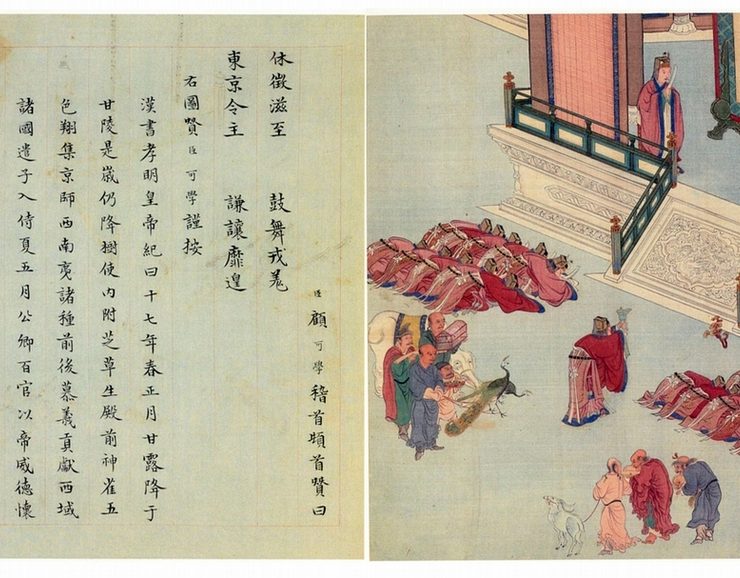 臣顧可學稽首頓首贊曰
休徵滋至 鼓舞戎羌
東京令主 謙讓靡遑
右圖贊臣可學謹按
漢書孝明皇帝紀曰十七年春正月甘露降于
甘陵是歲仍降樹使內附芝草生殿前神雀五
色翔集京師西南夷諸種前後慕義貢獻西域
諸國遣子入侍夏五月公卿百官以帝威德懷